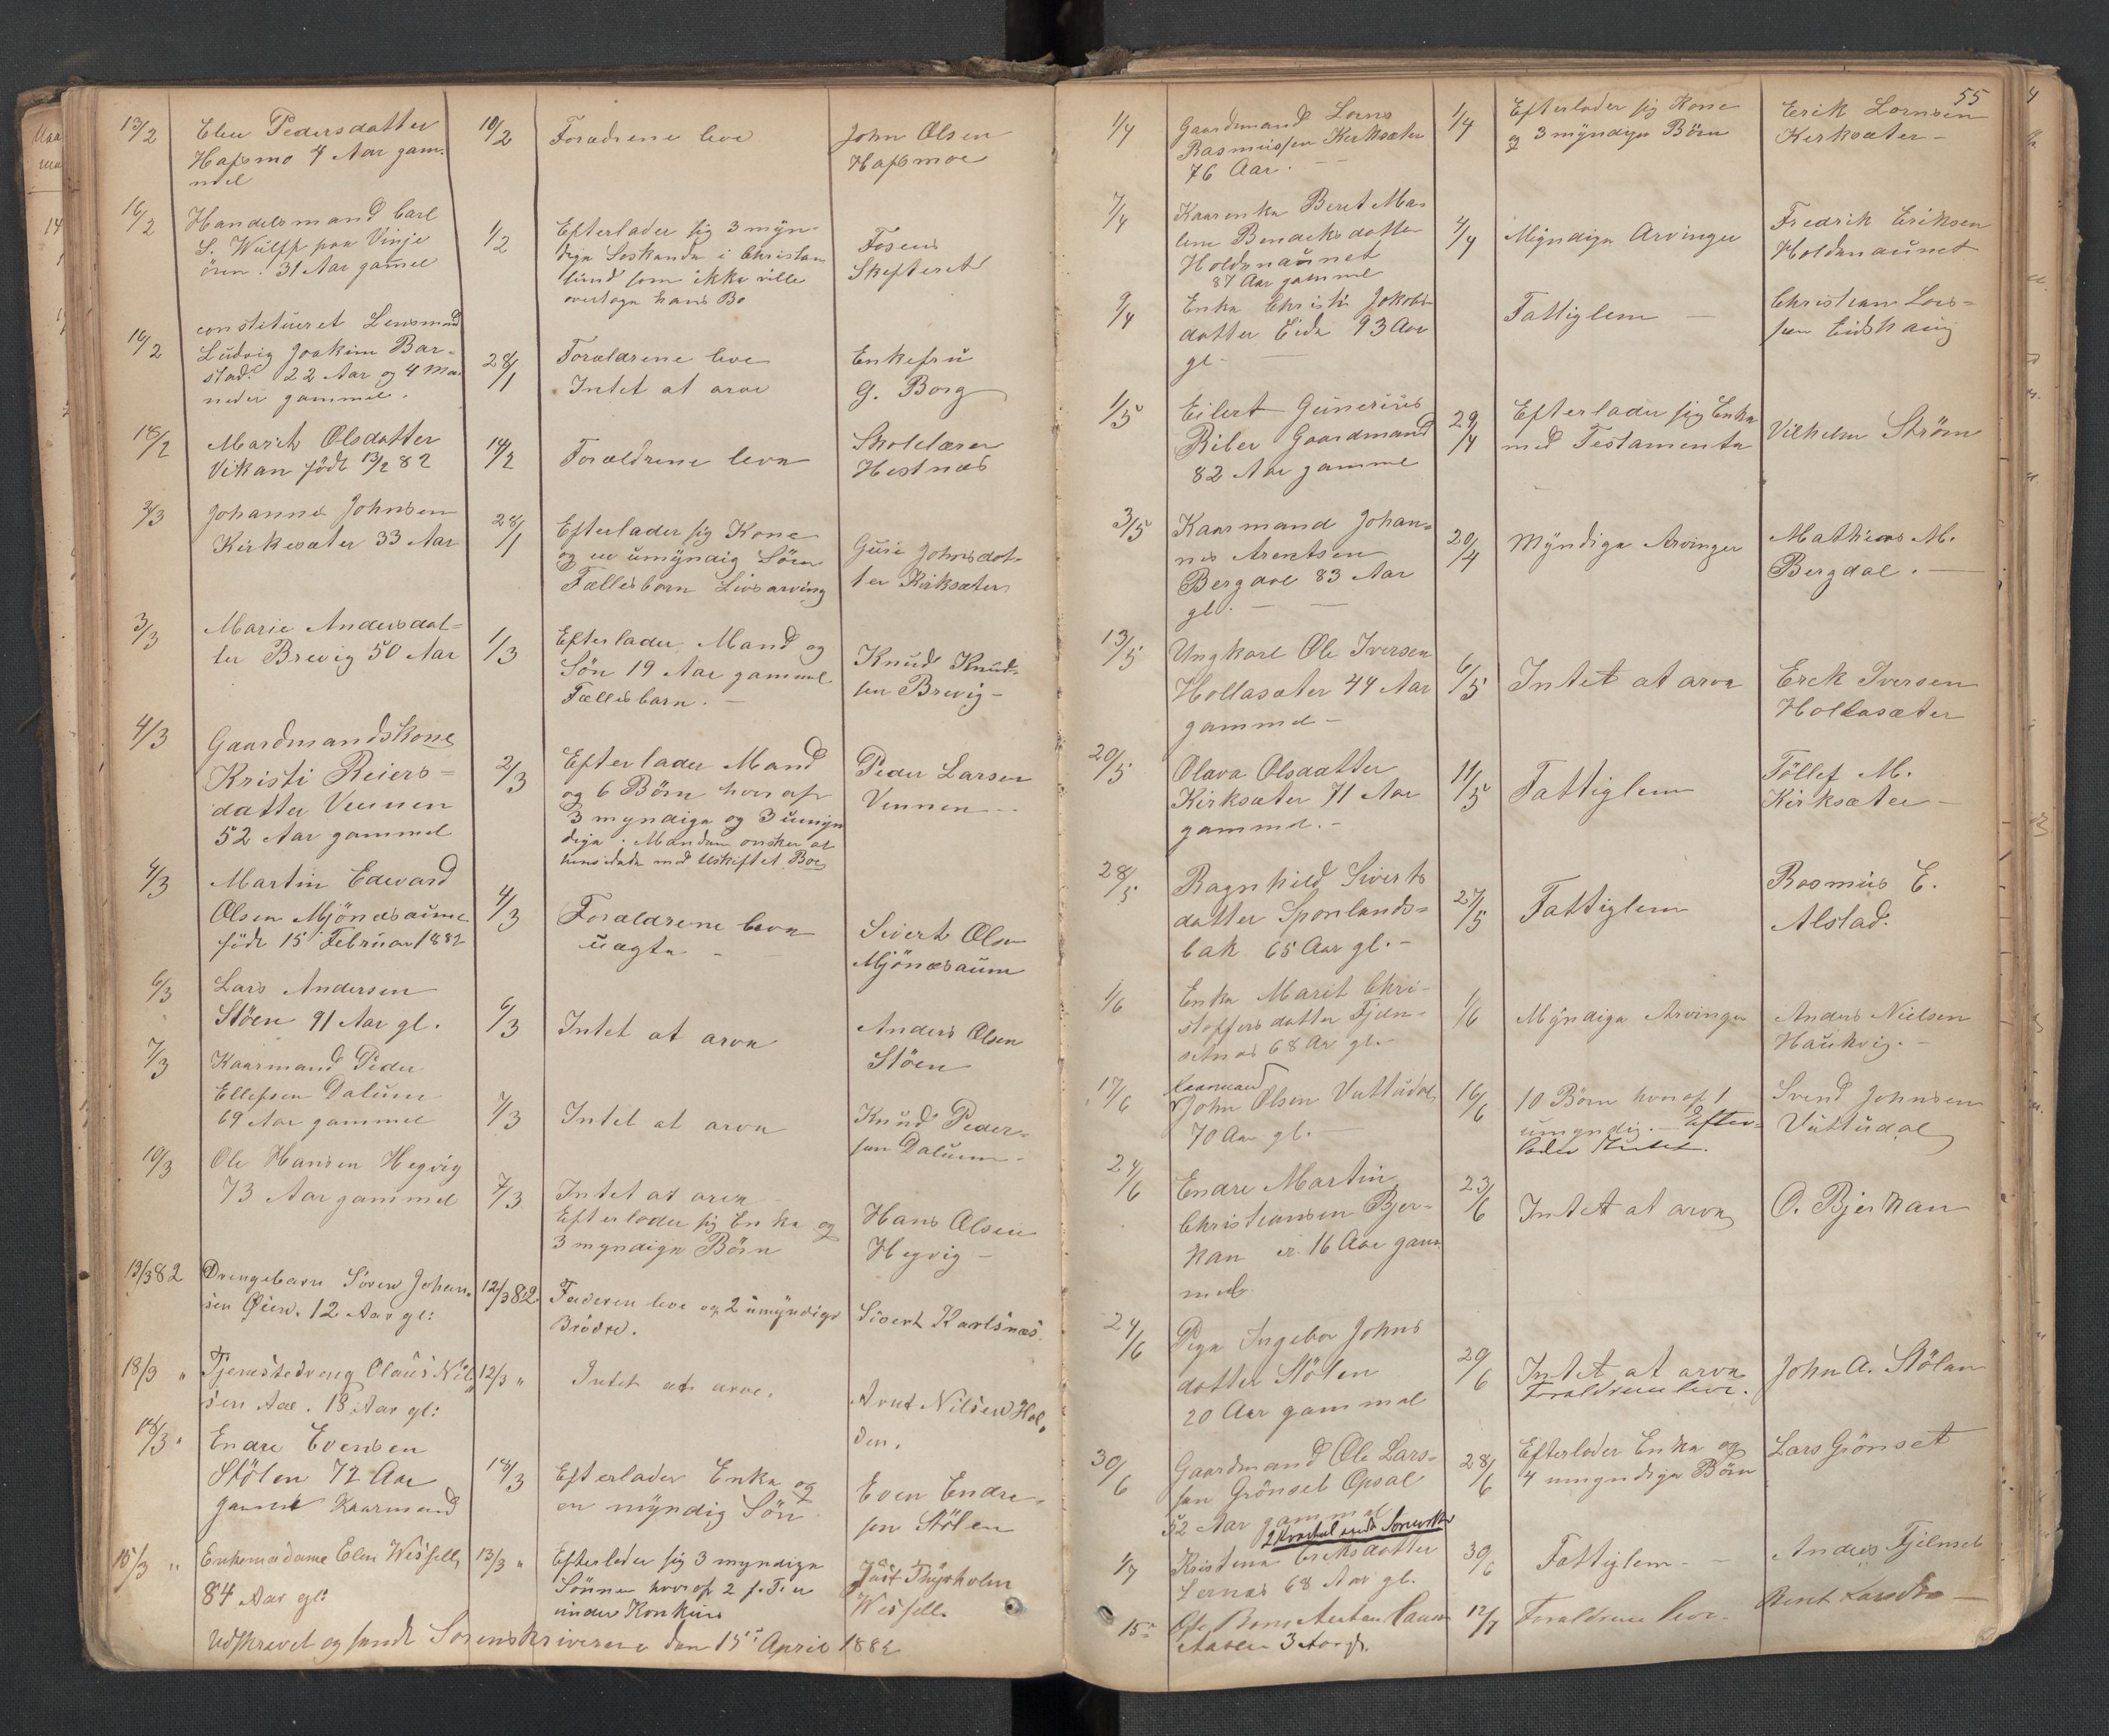 13/2 Elen Pedersdatter 10/2 Forældrene leve John Olsen
Hafsmo 4 Aar gam- Hafsmoe
mel
16/2 Handelsmand Carl 1/2 Efterlader sig 3 myn- Fosens
S. Wulff paa Vinje dige Søskende i Christian Skifteret
øren. 31 Aar gammel sund som ikke ville
overtage hans Bo
16/2 constitueret Lensmand 28/1 Forældrene leve Enkefru
Ludvig Joakim Bar- Intet at arve G. Borg
stad. 22 Aar og 4 Maa
neder gammel.
18/2 Marit Olsdatter 14/2 Forældrene leve Skolelærer
Vikan født 13/2 82 Hestnæs
2/3 Johannes Johnsen 28/1 Efterlader sig Kone Guri Johnsdat-
Kirkesæter 33 Aar og en umyndig Søn ter Kirksæter
Fællesbarn Livsarving
3/3 Marie Andersdat= 1/3 Efterlader Mand og Knud Knud-
ter Brevig 50 Aar Søn 19 Aar gammel sen Brevig -
Fællesbarn. -
4/3 Gaardmandskone 2/3 Efterlader Mand Peder Larsen
Kristi Reiers= og 6 Børn hvoraf Vennen -
datter Vennen 3 myndige og 3 umyn
52 Aar gammel dige. Manden ønsker at
hensidde med Uskiftet Boe
4/3 Martin Edevard 4/3 Forældrene leve Sivert Olsen
Olsen Mjønesaune uægte - Mjønesaum
født 15 Februar 1882
6/3 Lars Andersen 6/3 Intet at arve Anders Olsen
Støen 91 Aar gl. Støen
7/3 Kaarmand Peder 7/3 Intet at arve Knud Peder-
Ellefsen Dalum sen Dalum -
69 Aar gammel
10/3 Ole Hansen Hegvig 7/3 Intet at arve Hans Olsen
73 Aar gammel Efterlader sig Enke og Hegvig -
3 myndige Børn
13/3 82 Drengebarn Søren Johan- 12/3 82 Faderen leve og 2 umyndige Sivert Karlsnæs.
sen Øien. 12 Aar gl: Brødre.
18/3 " Tjenestedreng Olaus Nil- 12/3 " Intet at arve. Arnt Nilsen Hol-
sen Aae. 18 Aar gl: den.
18/3 " Endre Evensen 18/3 Efterlader Enke og Even Endre-
Stølen 72 Aar en myndig Søn sen Stølen
gammel Kaarmand
15/3 " Enkemadame Elen Wessell, 13/3 " Efterlader sig 3 myndige Just Thyrholm
84 Aar gl: Sønner hvoraf 2 f. T. er Wessell.
under Konkurs
Udskrevet og sendt Sorenskriveren den 15de April 1882
55
1/4 Gaardmand Lorns 1/4 Efterlader sig Kone Erik Lornsen
Rasmussen Kirksæter og 3 myndige Børn Kirksæter -
76 Aar. -
7/4 Kaarenke Beret Ma- 4/4 Myndige Arvinger Fredrik Eriksen
lene Bendeksdatter Holdenaunet
Holdenaunet
87 Aar gammel
9/4 Enke Christi Jakobs- Fattiglem - Christian Lars=
datter Eide 93 Aar sen Eidshaug
gl -
1/5 Eilert Gunerius 29/4 Efterlader sig Enke Vilhelm Strøm
Riber Gaardmand med Testamente
82 Aar gammel
3/5 Kaarmand Johan- 20/4 Myndige Arvinger Mathias M.
nes Arentsen Bergdal. -
Bergdal 83 Aar
gl. -
13/5 Ungkarl Ole Iversen 6/5 Intet at arve Erik Iversen
Hollasæter 44 Aar Hollasæter
gammel -
20/5 Olava Olsdatter 11/5 Fattiglem Tøllef M.
Kirksæter 71 Aar Kirksæter -
gammel. -
28/5 Ragnhild Siverts 27/5 Fattiglem Rasmus E.
datter Sponlands= Alstad.
bak 65 Aar gl. -
1/6 Enke Marit Chri- 1/6 Myndige Arvinger Anders Nielsen
stoffersdatter Fjeln- Haukvig. -
setnæs 68 Ar gl. -
17/6 Kaarmand John Olsen Vuttudal 16/6 10 Børn hvoraf 1 Svend Johnsen
70 Aar gl. - umyndig. - Efter- Vuttudal
lader Intet.
24/6 Endre Martin 23/6 Intet at arve O. Bjerkan
Christiansen Bjer-
kan er 16 Aar gam
mel
24/6 Pige Ingebor Johns 20/6 Intet at arve John A. Stølan
datter Stølen Forældrene leve.
20 Aar gammel
30/6 Gaardmand Ole Lars- 28/6 Efterlader Enke og Lars Grønset
sen Grønset Opsal 4 umyndige Børn
52 Aar gammel
2 Kvartal sendt Sorenskr
1/7 Kristena Eriksdatter 30/6 Fattiglem - Anders Fjelnset
Lernæs 68 Aar gl.
15- 12/7 Forældrene leve - Bernt
3 Aar gl.